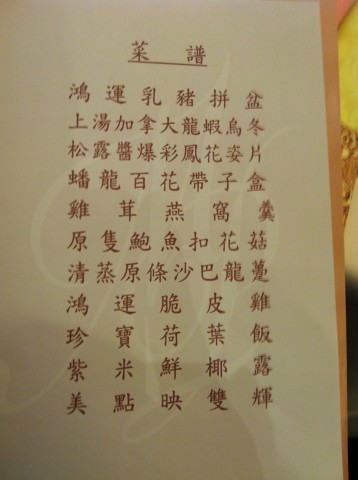 菜譜
鴻運乳豬拼盆
上湯加拿大龍蝦烏冬
松露醬爆彩鳳花姿片
蟠龍百花帶子盒
雞茸燕窩羹
原隻鮑魚扣花菇
清蒸原條沙巴龍躉
鴻運脆皮雞
珍寶荷葉飯
紫米鮮椰露
美點映雙輝